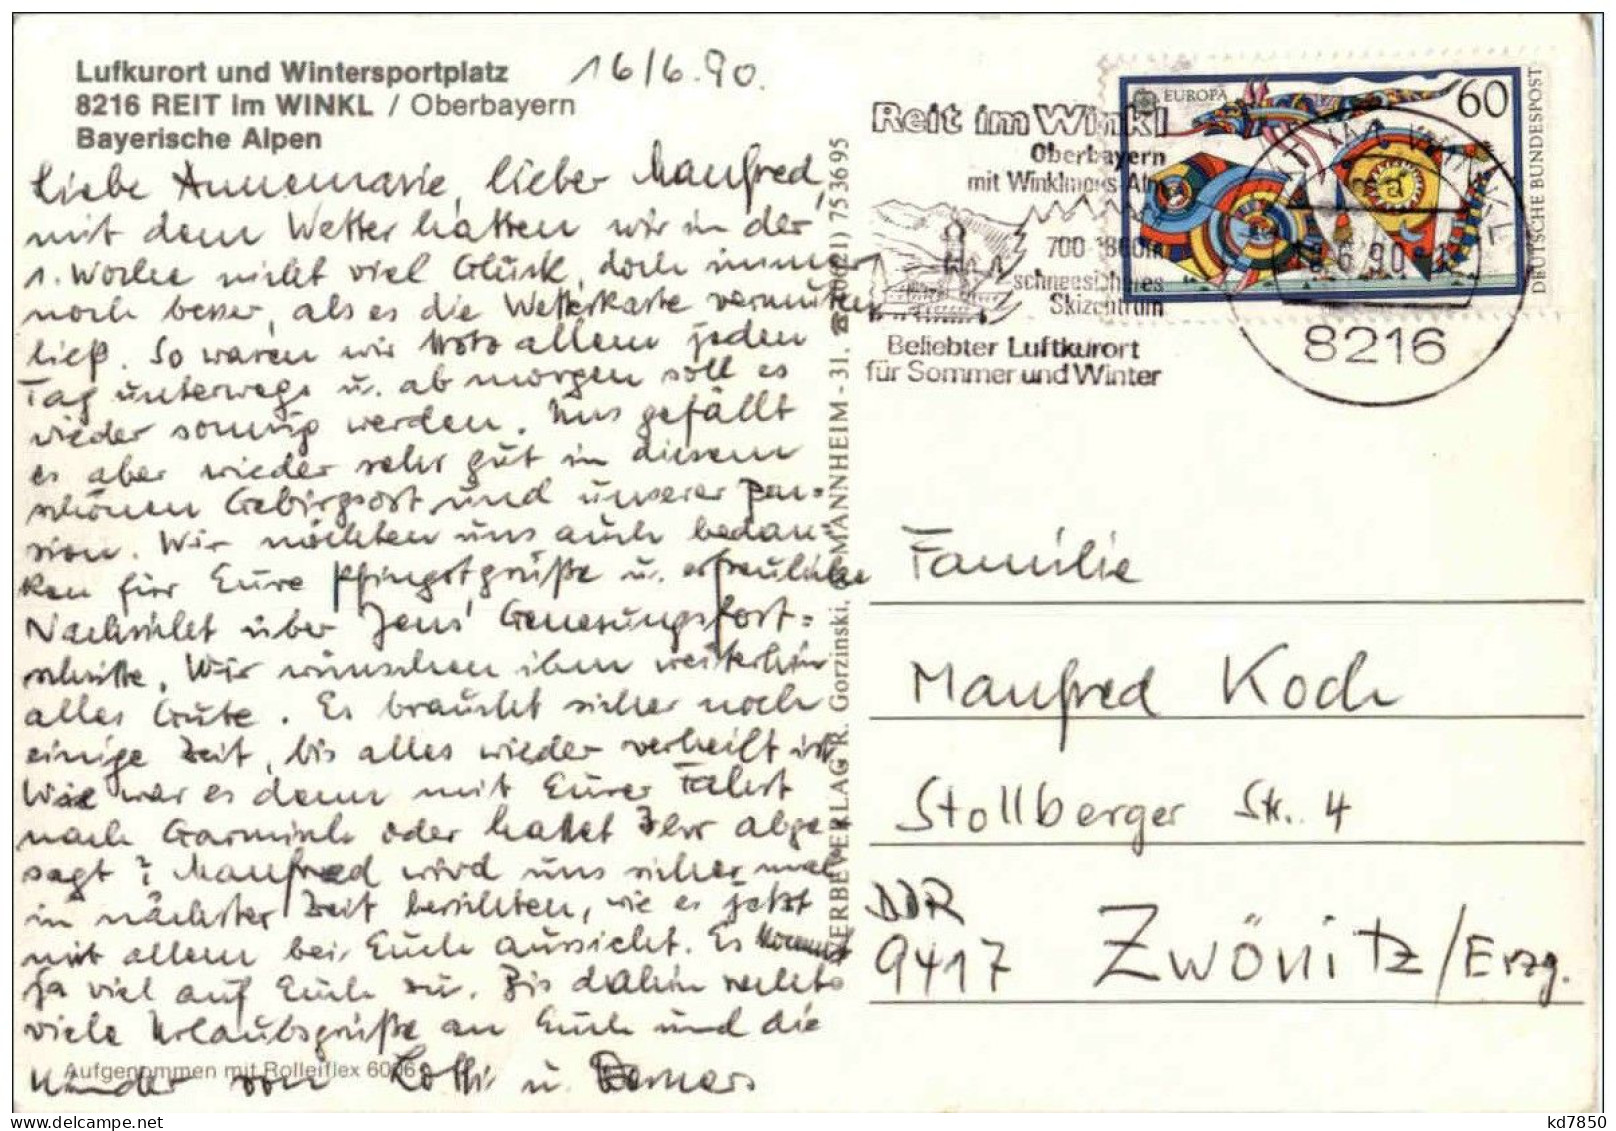 Lufkurort und Wintersportplatz
8216 REIT im WINKL / Oberbayern
Bayerische Alpen
16/6.90.
Liebe Annemarie, lieber Manfred,
mit dem Wetter hatten wir in der
1. Woche nicht viel Glück, doch immer
noch besser, als es die Wetterkarte vermuten
ließ. So waren wir trotz allem jeden
Tag unterwegs u. ab morgen soll es
wieder sonnig werden. Uns gefällt
es aber wieder sehr gut in diesem
schönen Gebirgsort und unserer Pen=
sion. Wir möchten uns auch bedan=
ken für Eure Pfingstgrüße u. erfreuliche
Nachricht über Jens' Genesungsfort=
schritte. Wir wünschen ihm weiterhin
alles Gute. Es braucht sicher noch
einige Zeit, bis alles wieder verheilt ist
Wie war es denn mit Eurer Fahrt
nach Garmisch oder hattet Ihr abge=
sagt? Manfred wird uns sicher mal
in nächster Zeit berichten, wie es jetzt
mit allem bei Euch aussieht. Es kommt
ja viel auf Euch zu. Bis dahin recht
viele Urlaubsgrüße an Euch und die
Kinder von Lotti u.
Aufgenommen mit Rolleiflex 6006
WERBEVERLAG R. Gorzinski, MANNHEIM - 31, ☎ (0621) 75 36 95
Reit im Winkl
Oberbayern
mit Winklmoos-Alm
700-1800m
schneesicheres
Skizentrum
Beliebter Luftkurort
für Sommer und Winter
EUROPA
60
DEUTSCHE BUNDESPOST
8216
Familie
Manfred Koch
Stollberger Str. 4
DDR
9417 Zwönitz/Erzg.
kd7850